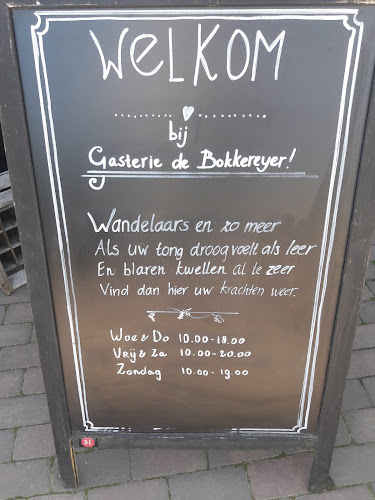 WELKOM
bij
Gasterie de Bokkereyer!
Wandelaars en zo meer
Als uw tong droog voelt als leer
En blaren kwellen al te zeer
Vind dan hier uw krachten weer.
Woe & Do 10.00-18.00
Vrij & Za 10.00-20.00
Zondag 10.00-19.00